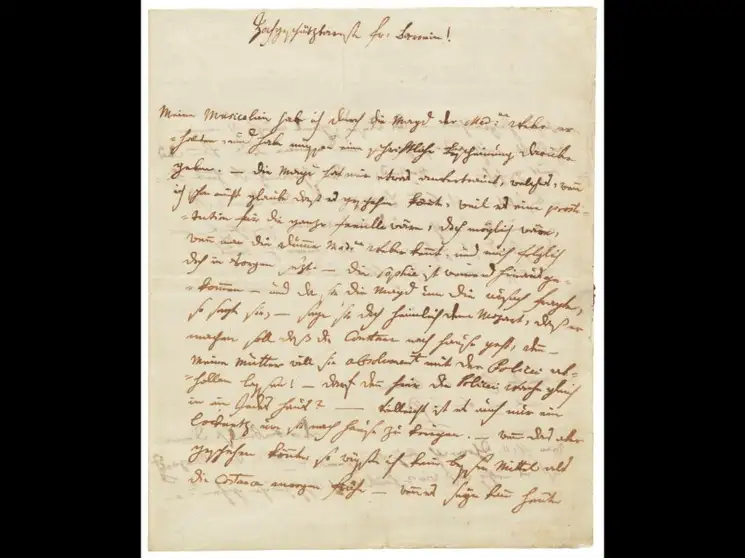 Hochschätzbarste fr: Baronin!
Meine Musicalien hab ich durch die Magd der Mad:me Weber er=
=halten, und habe müssen eine schriftliche bescheinung darüber
geben. — die Magd hat mir etwas anvertrauet, welches, wenn
ich schon nicht glaube daß es geschehen könte, weil es eine prosti=
=tution für die ganze familie wäre, doch möglich wäre,
wenn man die dumme Mad:me Weber kennt, und mich folglich
doch in Sorgen sezt. — die Sophie ist weinend hinaus ge=
=kommen — und da sie die Magd um die ursach fragte,
so sagte sie, — sage sie doch heimlich dem Mozart, daß er
machen soll daß die Constanz nach hause geht, denn —
Meine Mutter will sie absolument mit der Polizei ab=
=hollen lassen! — darf denn hier die Polizei Wache gleich
in ein Jedes haus? — villeicht ist es auch nur ein
locknetz um sie nach hause zu kriegen. — wenn das aber
geschehen könnte, so wüsste ich kein besser Mittel als
die Constanze morgen frühe — wenn es seyn kann heute